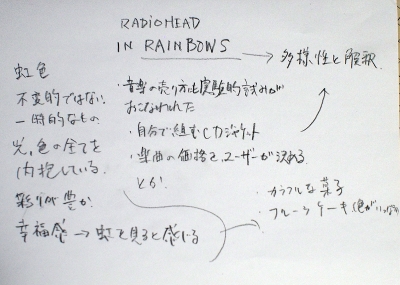 RADIOHEAD
IN RAINBOWS → 多様性と解釈
虹色
不変的ではない
一時的なもの
光、色の全てを
内抱している。
彩りが豊か
幸福感 → 虹を見ると感じる
・音楽の売り方も実験的試みが
おこなわれた
・自分で組むCDジャケット
・楽曲の価格を、ユーザーが決める
とか
・カラフルな菓子
・フルーツケーキ(色がいっぱい